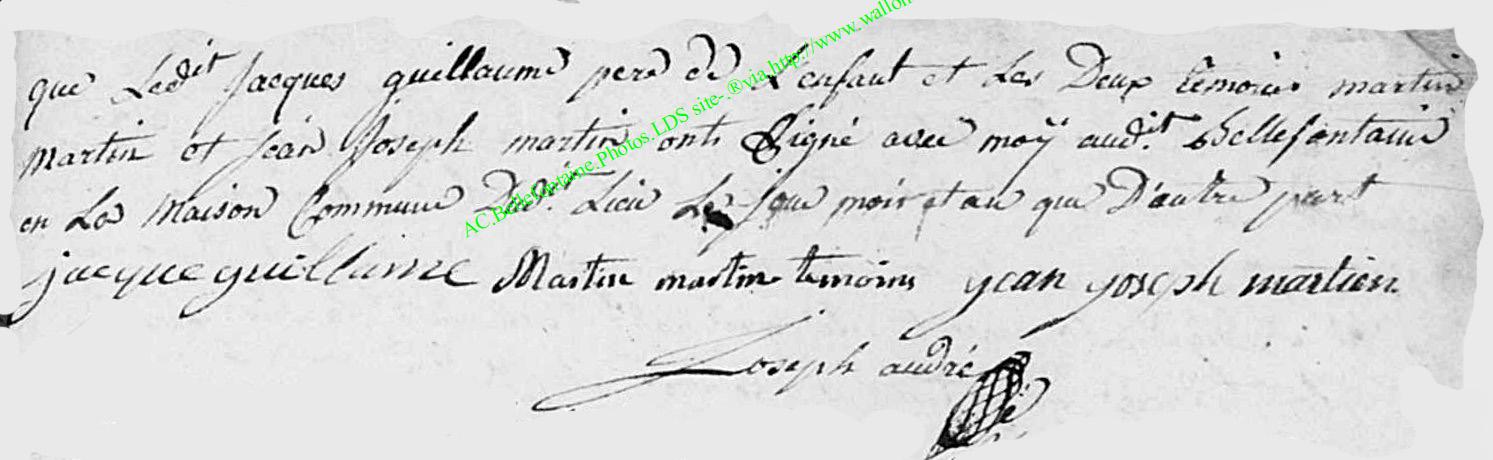 que Ledit Jacques guillaume pere de L'enfant et Les Deux temoins martin
martin et jean Joseph martin onts Signé avec moÿ audit. Bellefontaine
en La Maison Commune dud. Lieu Le jour mois et an que D'autre part
jacque guillaime Martin martin temoins yean yoseph martien
Joseph andré
AC.Bellefontaine.Photos.LDS site-®via http://www.wallon